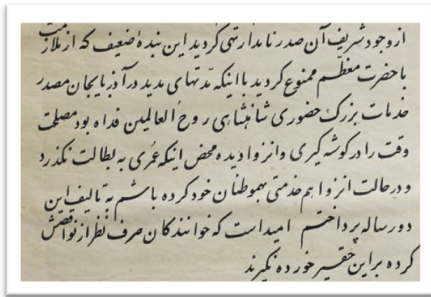 از وجود شریف آن صدر نامدار تهی گردید این بندهٔ ضعیف که از ملازمت
با حضرت معظم ممنوع گردید با اینکه مدتهای مدید در آذربایجان مصدر
خدمات بزرک حضوری شاهنشاهی روح العالمین فداه بود مصلحت
وقت را در کوشه کیری و انزوا دیده محض اینکه عمری به بطالت نکذرد
و در حالت انزوا هم خدمتی بهموطنان خود کرده باشم به تالیف این
دو رساله پرداختم امید است که خوانندکان صرف نظر از نواقصش
کرده بر این حقیر خورده نکیرند